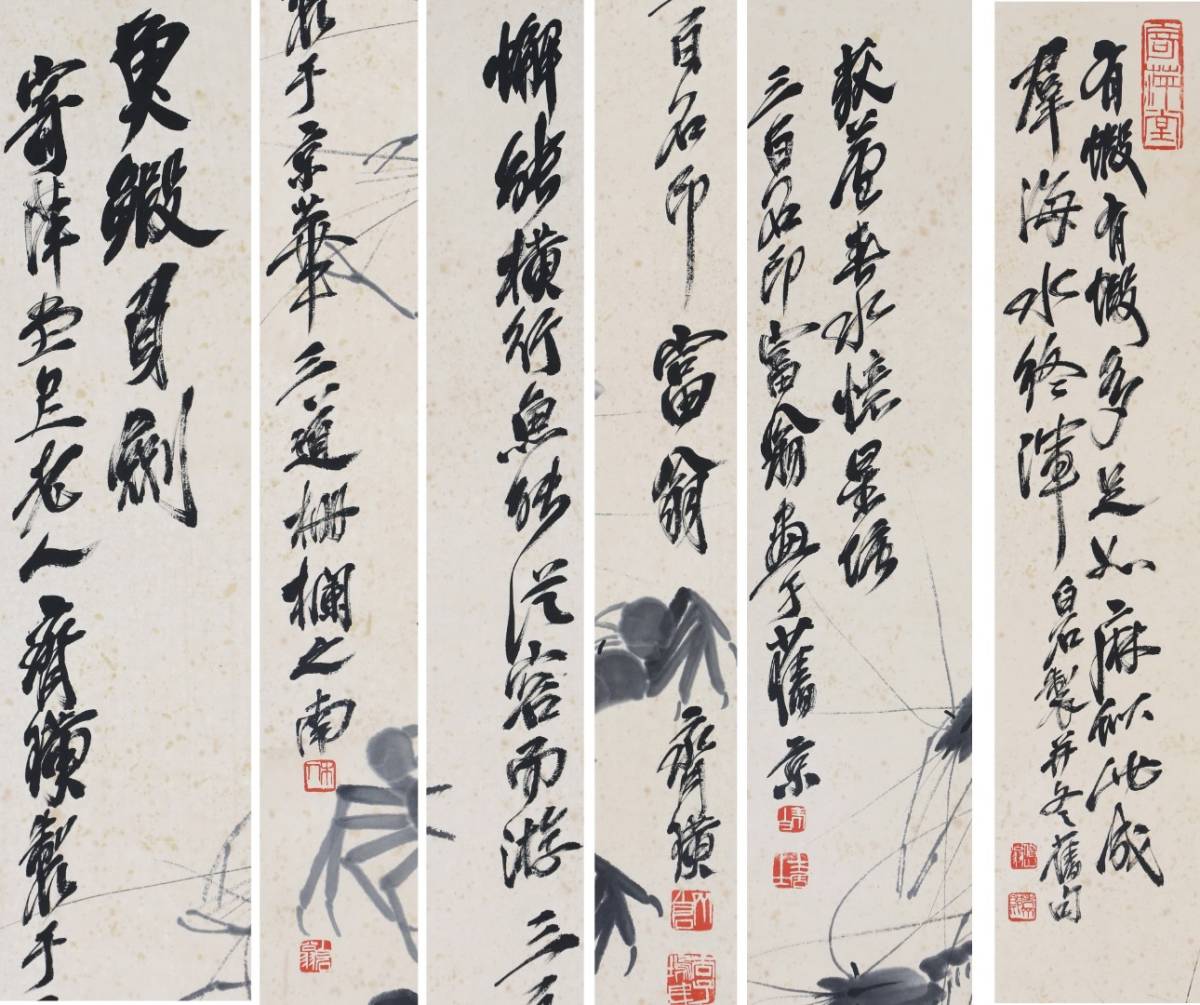 魚鰕
寄萍堂上老人齊璜製于
製于京華三道柵欄之南
木人
蠏能橫行魚能從容而游 三百
百石印富翁
齊璜
荻蘆春水憶星塘
三百石印富翁畫于舊京
寄萍堂
有蝦有蝦多足如麻似此成
羣海水終渾
白石製并舊句